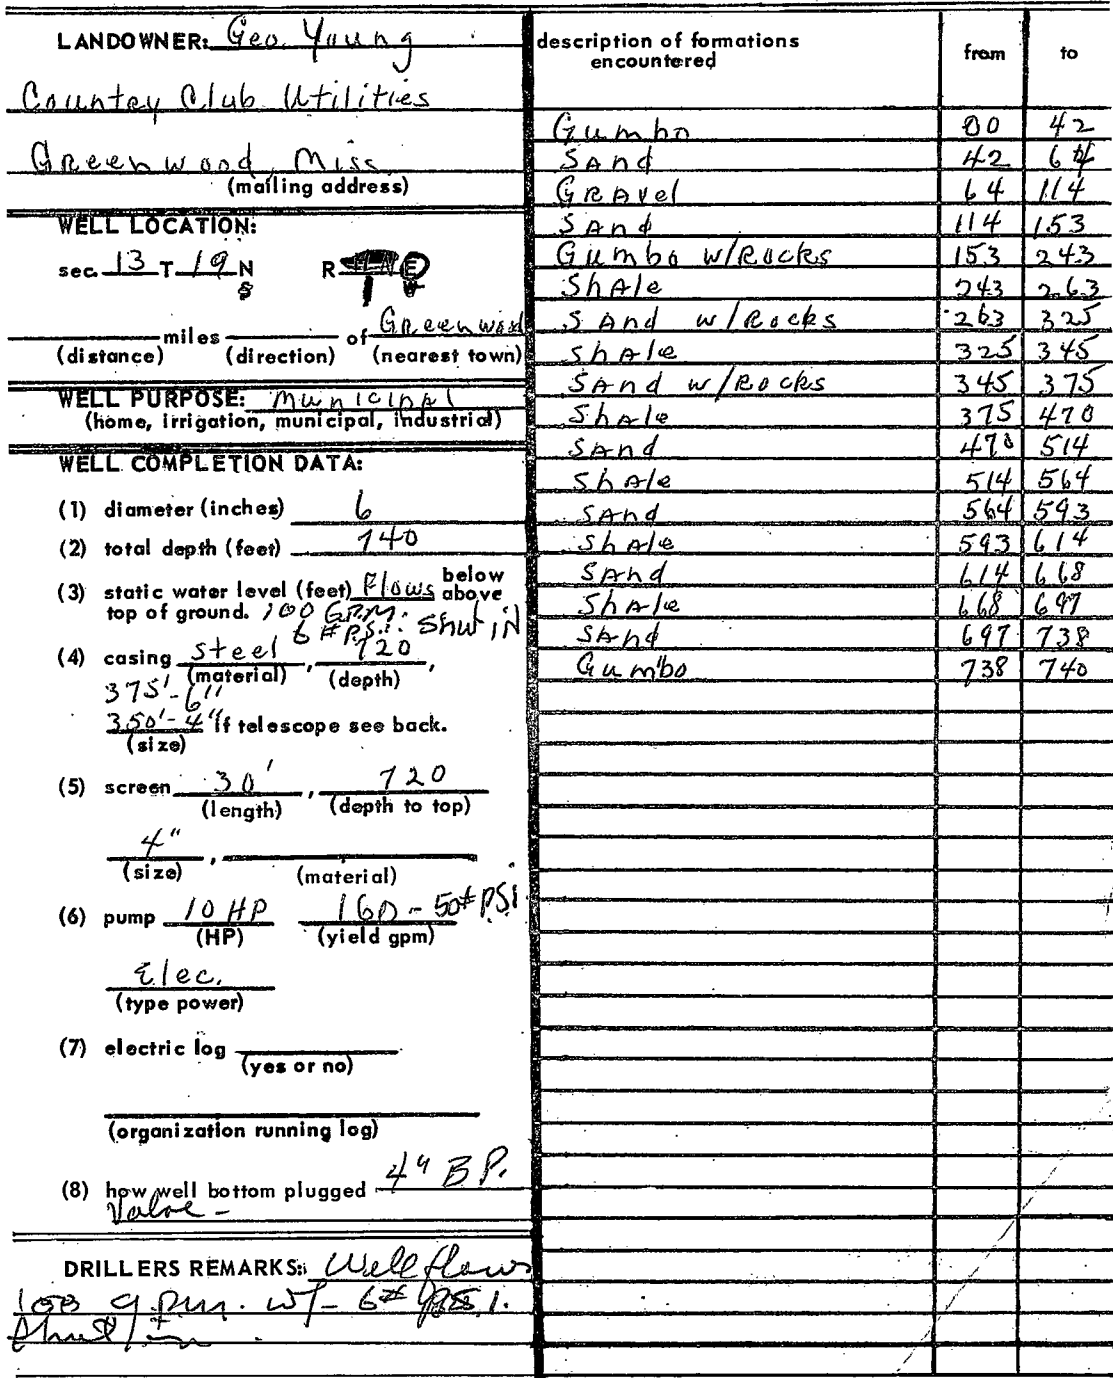 LANDOWNER: Geo. Young
Country Club Utilities
Greenwood, Miss
(mailing address)
WELL LOCATION:
sec. 13 T 19 N
S
R 1 E
W
miles of Greenwood
(distance) (direction) (nearest town)
WELL PURPOSE: Municipal
(home, irrigation, municipal, industrial)
WELL COMPLETION DATA:
(1) diameter (inches) 6
(2) total depth (feet) 740
(3) static water level (feet) Flows below
above
top of ground. 100 GPM.
6 # P.S.I. Shut in
(4) casing steel , 720 ,
(material) (depth)
375'-6"
350'-4" if telescope see back.
(size)
(5) screen 30' , 720
(length) (depth to top)
4" ,
(size) (material)
(6) pump 10 HP 160 - 50# PSI.
(HP) (yield gpm)
Elec.
(type power)
(7) electric log
(yes or no)
(organization running log)
(8) how well bottom plugged 4" B.P.
Valve -
DRILLERS REMARKS: Well flows
100 g.p.m. w/- 6# P.S.I.
Shut in.
description of formations
encountered from to
Gumbo 00 42
Sand 42 64
Gravel 64 114
Sand 114 153
Gumbo w/Rocks 153 243
Shale 243 263
Sand w/Rocks 263 325
Shale 325 345
Sand w/Rocks 345 375
Shale 375 470
Sand 470 514
Shale 514 564
Sand 564 593
Shale 593 614
Sand 614 668
Shale 668 697
Sand 697 738
Gumbo 738 740